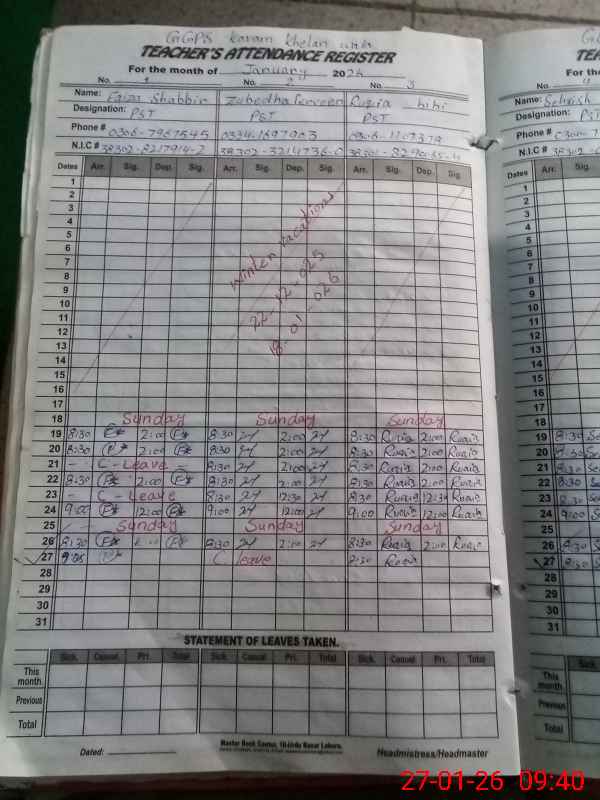 GGPS Karam Khelan wala
TEACHER'S ATTENDANCE REGISTER
For the month of January 2026
No. 1 No. 2 No. 3
Name: Faiza Shabbir Zubedha Parveen Ruzia bibi
Designation: PST PST PST
Phone # 0306-7967545 0334-1697903
N.I.C # 38302-8217914-2 38302-3214736-0
Dates Arr. Sig. Dep. Sig. Arr. Sig. Dep. Sig. Arr. Sig. Dep. Sig.
1
2
3
4
5
6
7
8
9
10
11
12
13
14
15
16
Winter vacations
22-12-025
18-01-026
18 Sunday Sunday Sunday
19 8:30 2:00 8:30 2:00 8:30 Ruzia 2:00 Ruzia
20 8:30 2:00 8:30 2:00 8:30 Ruzia 2:00 Ruzia
21 - C-Leave - 8:30 2:00 8:30 Ruzia 2:00 Ruzia
22 8:30 2:00 8:30 2:00 8:30 Ruzia 2:00 Ruzia
23 - C-Leave 8:30 12:30 8:30 Ruzia 12:30 Ruzia
24 9:00 12:00 9:00 12:00 9:00 Ruzia 12:00 Ruzia
25 Sunday Sunday Sunday
26 8:30 8:30 2:00 8:30 Ruzia 2:00 Ruzia
27 9:05 C. leave 8:30 Ruzia
28
29
30
31
STATEMENT OF LEAVES TAKEN.
Sick. Casual Pri. Total Sick. Casual Pri. Total Sick. Casual Pri. Total
This month.
Previous
Total
Master Book Centre, 10-Urdu Bazar Lahore.
Dated: Headmistress/Headmaster
GG
TEA
For the
No. 4
Name: Sehrish
Designation: PST
Phone #
N.I.C # 38302
Dates Arr. Sig.
1
2
3
4
5
6
7
8
9
10
11
12
13
14
15
16
18
19 8:30 Se
20 8:30 Se
21 8:30 Se
22 8:30 Se
23 8:30 Se
24 9:00 Se
25
26 8:30 S
27 8:30 S
28
29
30
31
Sick.
This month.
Previous
Total
27-01-26 09:40